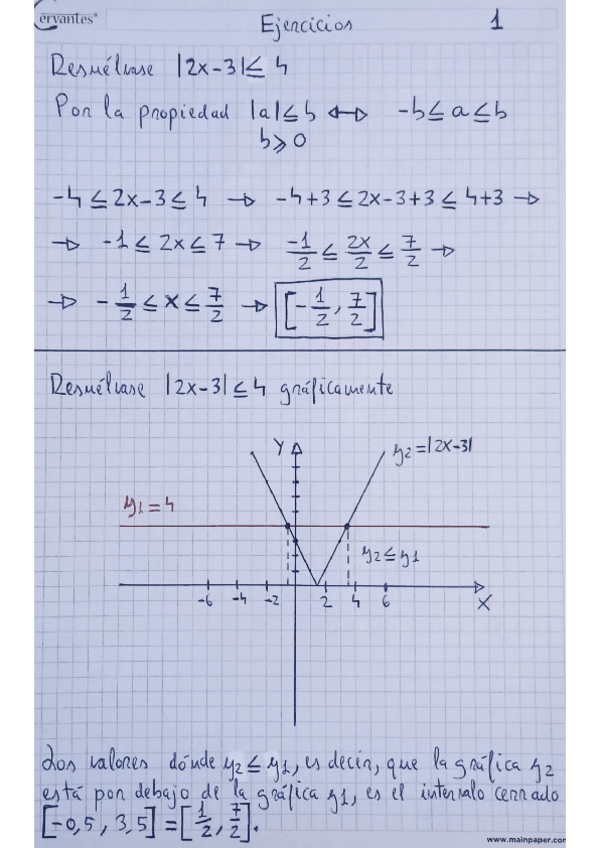 Cervantes®
Ejercicios 1
Resuélvase |2x-3|≤ 4
Por la propiedad |a|≤b ↔ -b≤a≤b
b≥0
-4≤2x-3≤4 → -4+3≤2x-3+3≤4+3 →
→ -1≤2x≤7 → -1/2 ≤ 2x/2 ≤ 7/2 →
→ -1/2 ≤ x ≤ 7/2 → [-1/2, 7/2]
Resuélvase |2x-3|≤4 gráficamente
Y y2=|2x-3|
y1=4
y2≤y1
-6 -4 -2 2 4 6
X
Los valores dónde y2≤y1, es decir, que la gráfica y2
está por debajo de la gráfica y1, es el intervalo cerrado
[-0,5 , 3,5]=[1/2, 7/2].
www.mainpaper.com